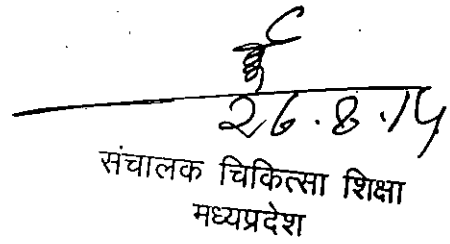 26.8.14
संचालक चिकित्सा शिक्षा
मध्यप्रदेश